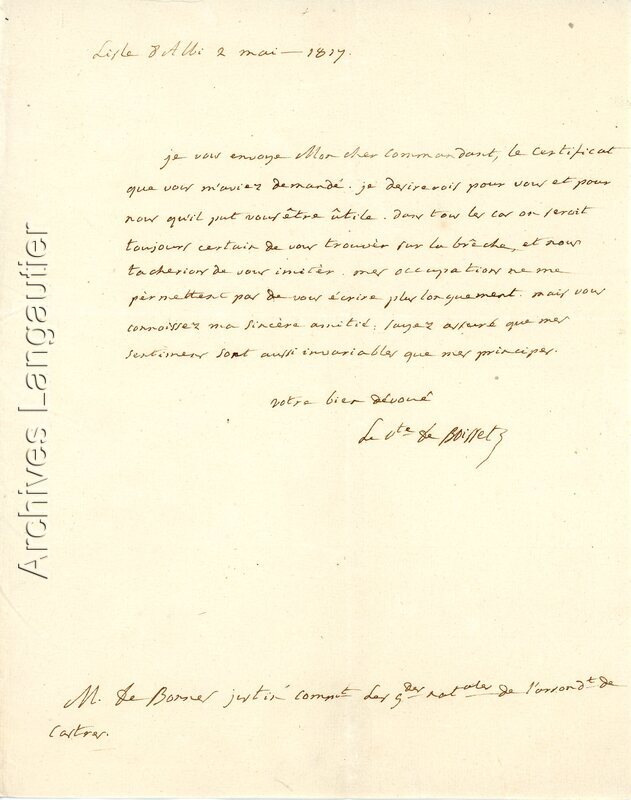 Lisle d'Albi 2 mai — 1817.
je vous envoye Mon cher Commandant, le certificat
que vous m'aviez demandé. je desirerois pour vous et pour
nous qu'il put vous être ûtile. dans tous les cas on seroit
toujours certain de vous trouvèr sur la brèche, et nous
tacherions de vous imitèr. mes occupations ne me
pèrmettent pas de vous écrire plus longuement. mais vous
connoissez ma sincère amitié: soyez assuré que mes
sentimens sont aussi invariables que mes principes.
votre bien dévoué
Le Vte de Boisset
M. de Bonnes comt des gdes natales de l'arrondt de
Castres.
Archives Langautier